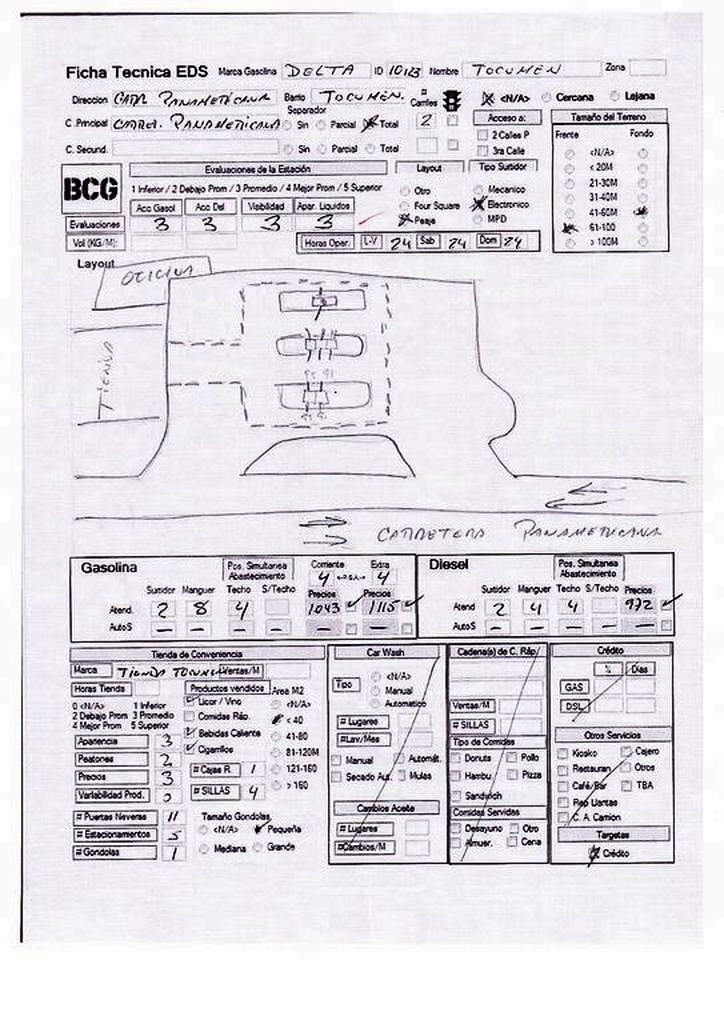 Ficha Tecnica EDS Marca Gasolina DELTA ID 10123 Nombre TOCUMEN Zona
Direccion CARR. PANAMERICANA Barrio TOCUMEN. # Carriles <N/A> Cercana Lejana
C Principal CARRET. PANAMERICANA Separador Sin Parcial Total 2 Acceso a: Tamaño del Terreno
C. Secund. Sin Parcial Total 2 Calles P Frente Fondo
3ra Calle <N/A>
BCG Evaluaciones de la Estación Layout Tipo Surtidor < 20M
1 Inferior / 2 Debajo Prom / 3 Promedio / 4 Mejor Prom / 5 Superior Otro Mecanico 21-30M
Acc Gasol Acc Dsl Visibilidad Apar. Liquidos Four Square Electronico 31-40M
Evaluaciones 3 3 3 3 Peaje MPD 41-60M
Vol (KG/M): Horas Oper. L-V 24 Sab 24 Dom 24 61-100
> 100M
Layout
OFICINA
TIENDA
CARRETERA PANAMERICANA
Gasolina Pos. Simultanea Abastecimiento Corriente Extra Diesel Pos. Simultanea Abastecimiento
4 4
Surtidor Manguer Techo S/Techo Precios Precios Surtidor Manguer Techo S/Techo Precios
Atend. 2 8 4 1043 1115 Atend 2 4 4 972
AutoS – – – – – AutoS – – – –
Tienda de Conveniencia Car Wash Cadena(s) de C. Ráp. Crédito
Marca TIENDA TOCUMEN Ventas/M
Horas Tienda Productos vendidos Area M2
0 <N/A> 1 Inferior
2 Debajo Prom 3 Promedio
4 Mejor Prom 5 Superior
Licor / Vino <N/A>
Comidas Ráp. < 40
Apariencia 3 Bebidas Caliente 41-80
Peatones 2 Cigarrillos 81-120M
Precios 3 # Cajas R. 1 121-160
Variabilidad Prod. # SILLAS 4 > 160
# Puertas Neveras 11 Tamaño Gondolas
# Estacionamientos 5 <N/A> Pequeña
# Gondolas 1 Mediana Grande
Tipo <N/A>
Manual
Automatico
# Lugares
#Lav/Mes
Manual Automát.
Secado Aut. Mulas
Cambios Aceite
# Lugares
#Cambios/M
Ventas/M
# SILLAS
Tipo de Comidas
Donuts Pollo
Hambu. Pizza
Sandwich
Comidas Servidas
Desayuno Otro
Almuer. Cena
% Dias
GAS
DSL
Otros Servicios
Kiosko Cajero
Restauran Otros
Café/Bar TBA
Rep Llantas
C. A. Camion
Targetas
Crédito